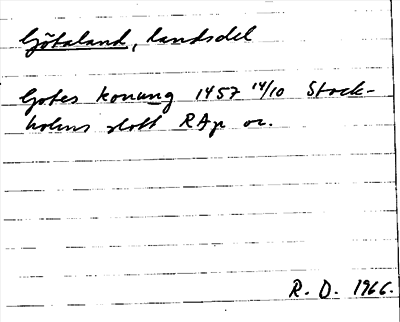 Götaland, landsdel
Gotes konung 1457 14/10 Stock-
holms slott RAp or.
R. O. 1966.